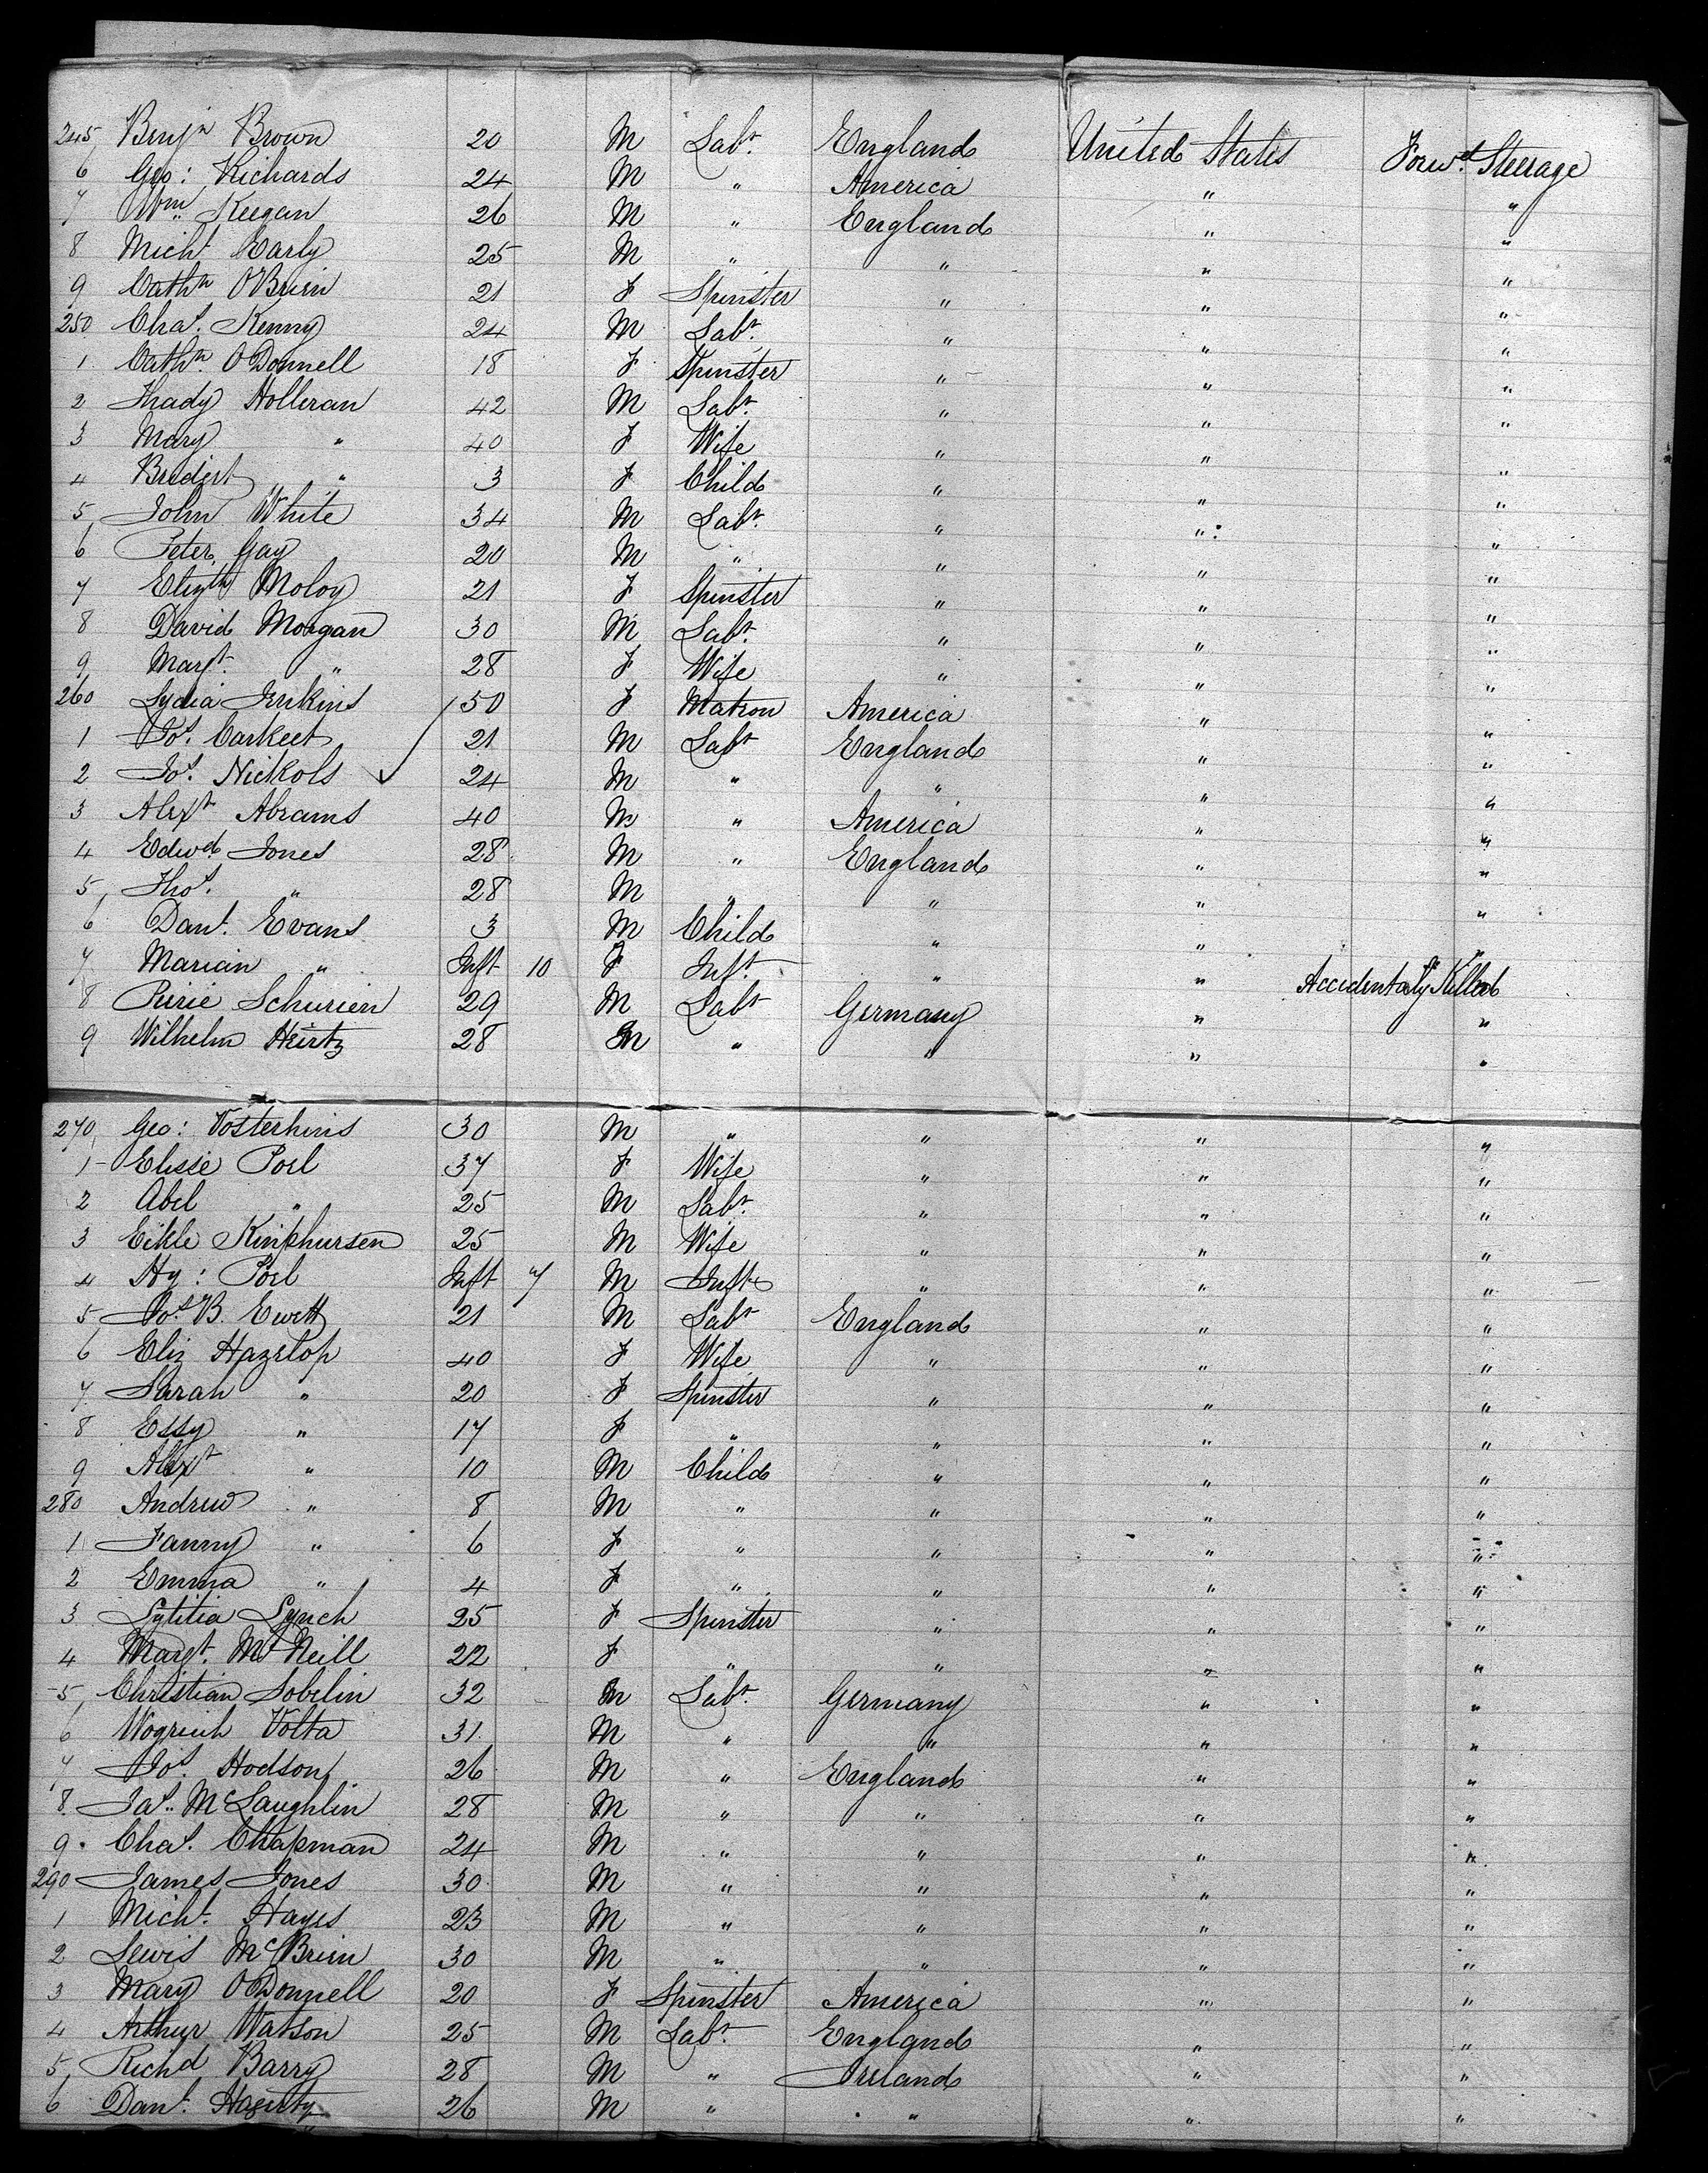 245 Benjn Brown 20 M Labr. England United States Forwd. Steerage
6 Geo: Richards 24 M " America " "
7 Wm. Keegan 26 M " England " "
8 Michl. Early 25 M " " " "
9 Cathn O'Brien 21 F Spinster " " "
250 Chas. Kenny 24 M Labr. " " "
1 Cathn. O'Donnell 18 F Spinster " " "
2 Thady Holleran 42 M Labr. " " "
3 Mary " 40 F Wife " " "
4 Bridget " 3 F Child " " "
5 John White 34 M Labr. " " "
6 Peter Gay 20 M " " " "
7 Elizth Moloy 21 F Spinster " " "
8 David Morgan 30 M Labr. " " "
9 Margt. " 28 F Wife " " "
260 Lydia Jenkins 50 F Matron America " "
1 Jos. Carkeet 21 M Labr England " "
2 Jos. Nickols ✓ 24 M " " " "
3 Alexr Abrams 40 M " America " "
4 Edwd. Jones 28 M " England " "
5 Thos. " 28 M " " " "
6 Danl. Evans 3 M Child " " "
7 Marian " Inft 10 F Inft. " " Accidentaly Killed
8 Schurien 29 M Labr Germany " "
9 Wilhelm Heirtz 28 M " " " "
270 Geo: Vosterhins 30 M " " " "
1 Elisse Poel 37 F Wife " " "
2 Abel " 25 M Labr. " " "
3 Eikle Kinphursen 25 M Wife " " "
4 Hy: Poel Inft 7 M Inft " " "
5 Jos. B. Ewitt 21 M Labr England " "
6 Eliz Hazelop 40 F Wife " " "
7 Sarah " 20 F Spinster " " "
8 Essy " 17 F " " " "
9 Alexr " 10 M Child " " "
280 Andrew " 8 M " " " "
1 Fanny " 6 F " " " "
2 Emma " 4 F " " " "
3 Lytitia Lynch 25 F Spinster " " "
4 Margt. McNeill 22 F " " " "
5 Christian Sobelin 32 M Labr. Germany " "
6 Volta 31 M " " " "
7 Jos. Hodson 26 M " England " "
8 Jas. McLaughlin 28 M " " " "
9 Chas. Chapman 24 M " " " "
290 James Jones 30 M " " " "
1 Michl. Hayes 23 M " " " "
2 Lewis McBrien 30 M " " " "
3 Mary O'Donnell 20 F Spinster America " "
4 Arthur Watson 25 M Labr. England " "
5 Richd Barry 28 M " Ireland " "
6 Danl. Hagerty 26 M " " " "